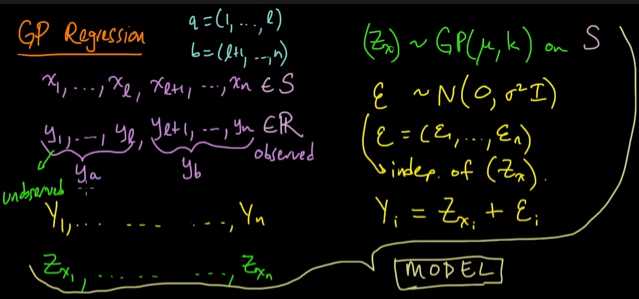 GP Regression
a = (1, ..., l)
b = (l+1, ..., n)
x₁, ..., xₗ, xₗ₊₁, ..., xₙ ∈ S
y₁, ..., yₗ, yₗ₊₁, ..., yₙ ∈ ℝ
observed
yₐ
y_b
unobserved
Y₁, ... ... ..., Yₙ
Z_{x₁}, ... ... ..., Z_{xₙ}
(Zₓ) ~ GP(μ, k) on S
ε ~ N(0, σ²I)
ε = (ε₁, ..., εₙ)
indep. of (Zₓ).
Yᵢ = Z_{xᵢ} + εᵢ
MODEL